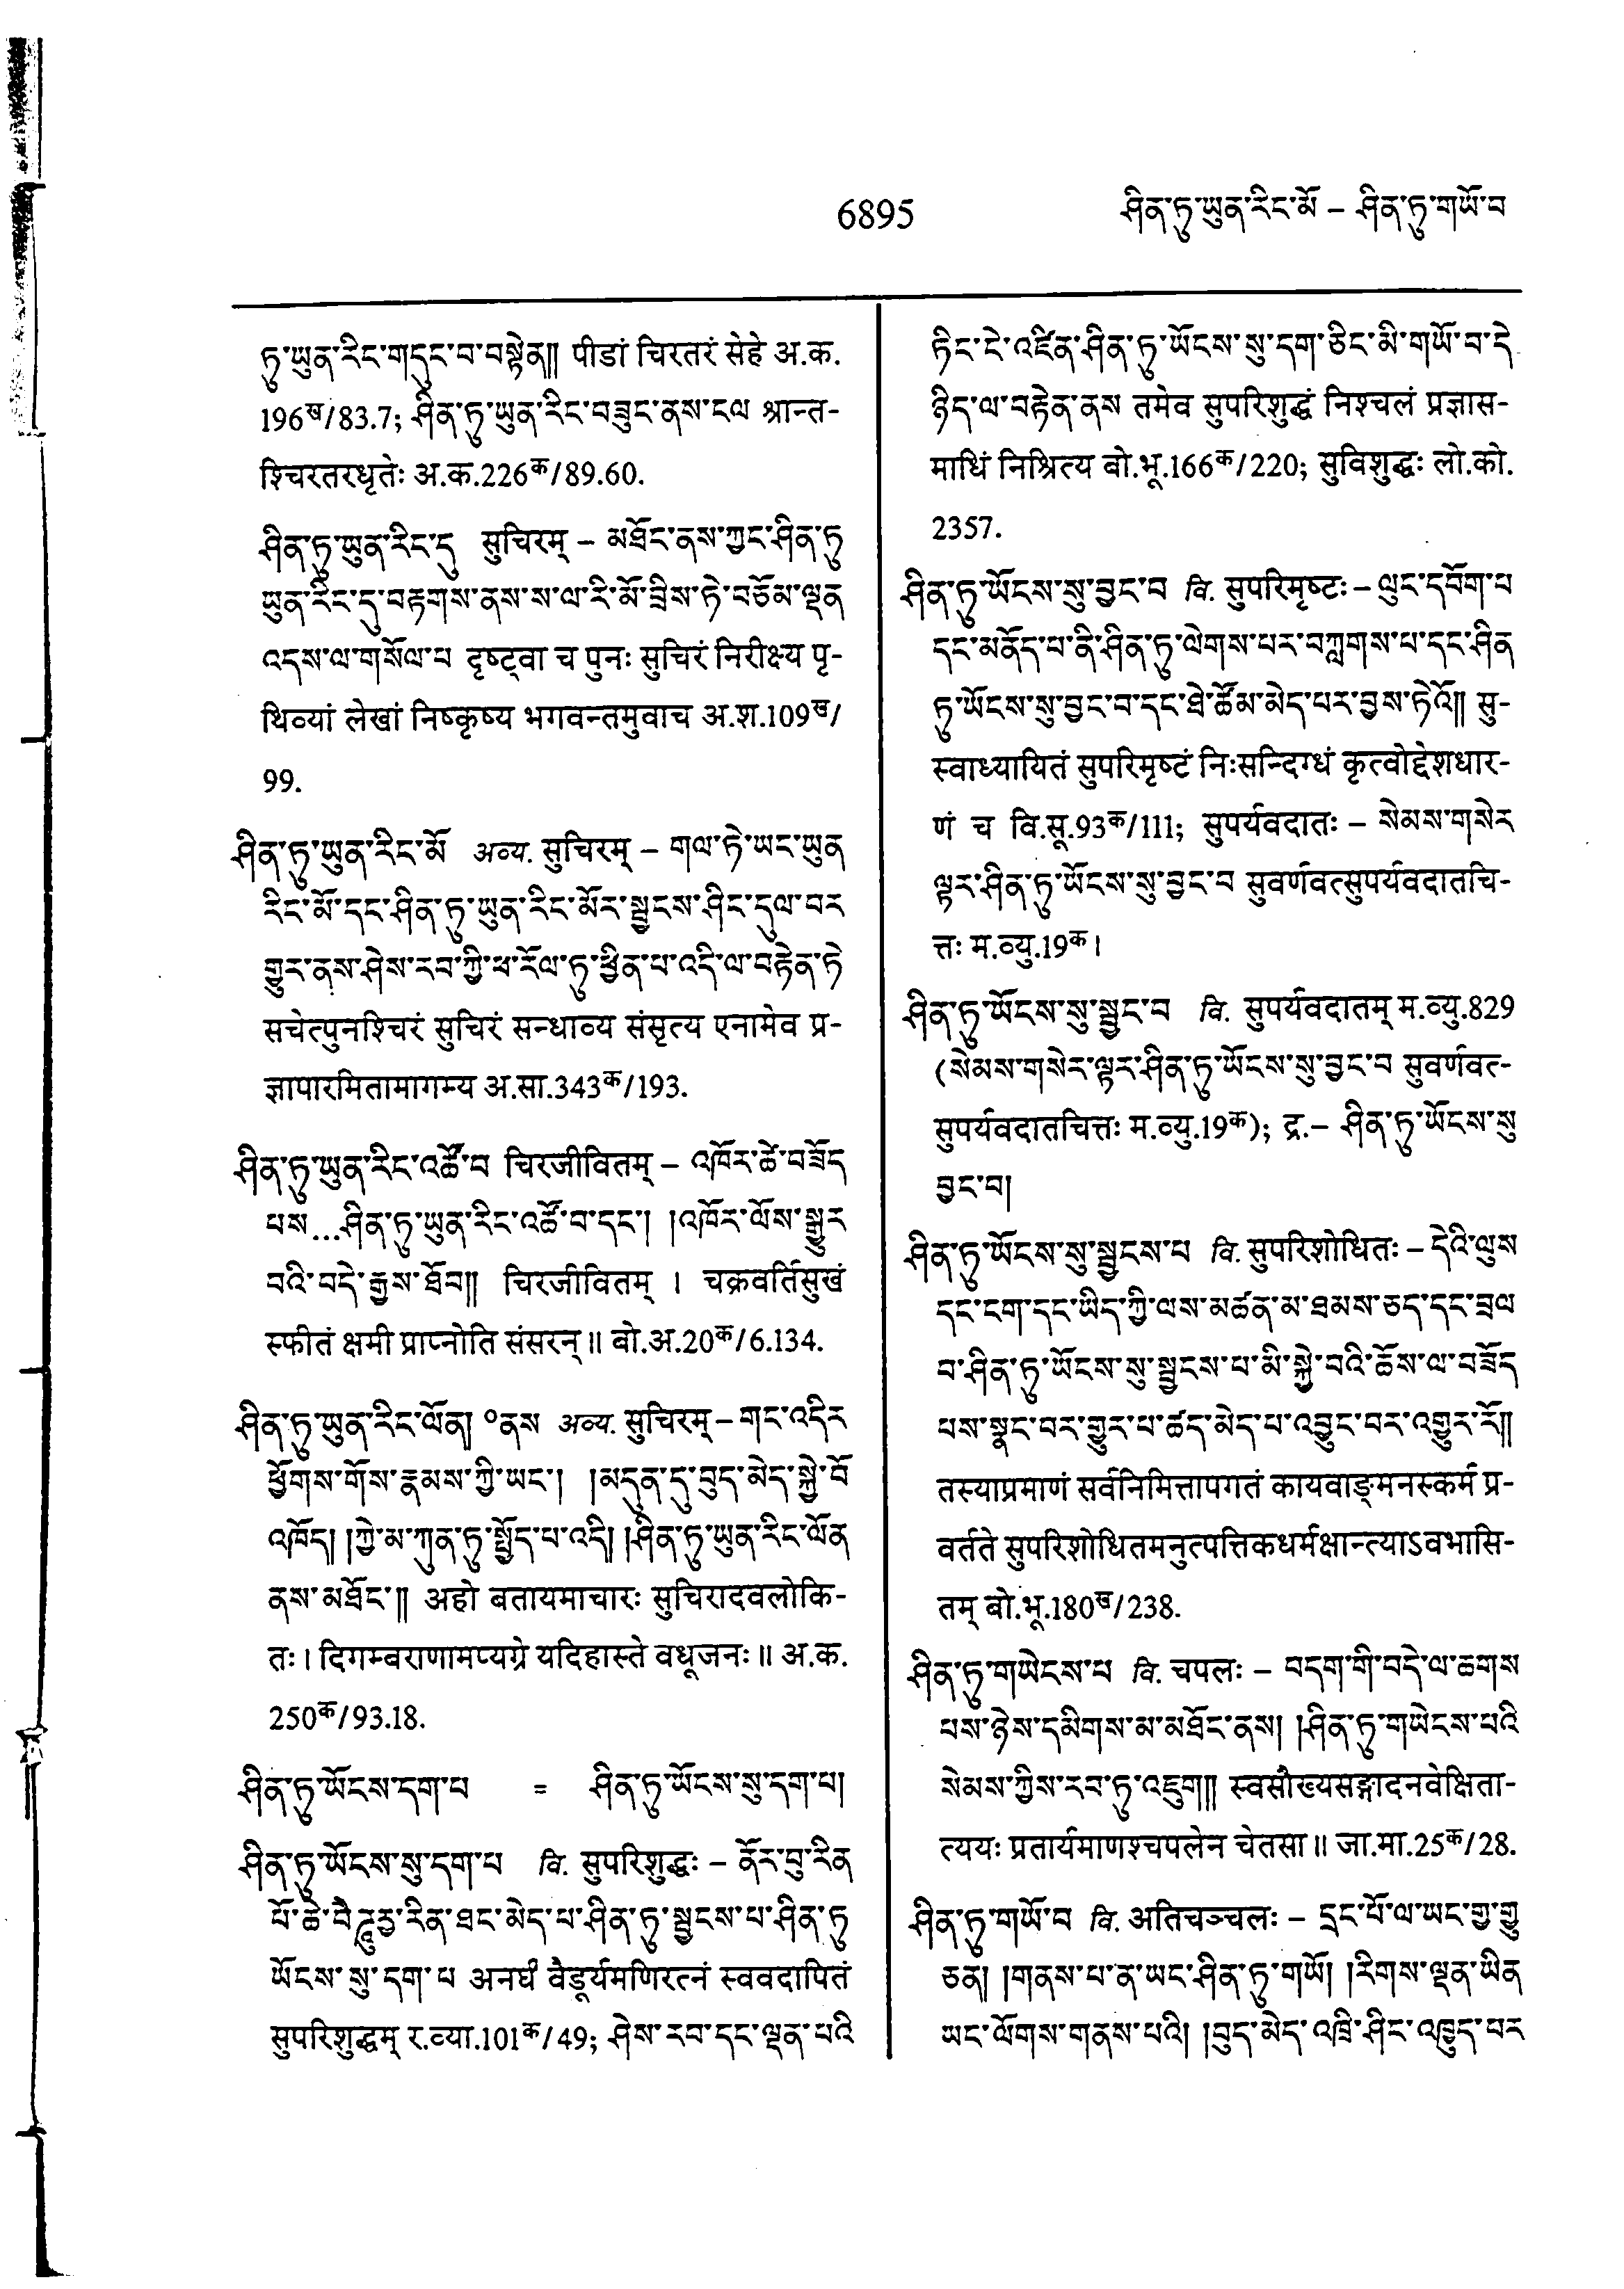 6895
ཤིན་ཏུ་ཡུན་རིང་མོ – ཤིན་ཏུ་གཡོ་བ
ཏུ་ཡུན་རིང་གདུང་བ་བསྟེན།། पीडां चिरतरं सेहे अ.क.
196ख/83.7; ཤིན་ཏུ་ཡུན་རིང་བཟུང་ནས་ངལ श्रान्त-
श्चिरतरधृतेः अ.क.226क/89.60.
ཤིན་ཏུ་ཡུན་རིང་དུ सुचिरम् – མཐོང་ནས་ཀྱང་ཤིན་ཏུ
ཡུན་རིང་དུ་བརྟགས་ནས་ས་ལ་རི་མོ་བྲིས་ཏེ་བཅོམ་ལྡན
འདས་ལ་གསོལ་པ दृष्ट्वा च पुनः सुचिरं निरीक्ष्य पृ-
थिव्यां लेखां निष्कृष्य भगवन्तमुवाच अ.श.109ख/
99.
ཤིན་ཏུ་ཡུན་རིང་མོ अव्य. सुचिरम् – གལ་ཏེ་ཡང་ཡུན
རིང་མོ་དང་ཤིན་ཏུ་ཡུན་རིང་མོར་སྦྱངས་ཤིང་དུལ་བར
གྱུར་ནས་ཤེས་རབ་ཀྱི་ཕ་རོལ་ཏུ་ཕྱིན་པ་འདི་ལ་བརྟེན་ཏེ
सचेत्पुनश्चिरं सुचिरं सन्धाव्य संसृत्य एनामेव प्र-
ज्ञापारमितामागम्य अ.सा.343क/193.
ཤིན་ཏུ་ཡུན་རིང་འཚོ་བ चिरजीवितम् – འཁོར་ཚེ་བཟོད
པས...ཤིན་ཏུ་ཡུན་རིང་འཚོ་བ་དང་། །འཁོར་ལོས་སྒྱུར
བའི་བདེ་རྒྱས་ཐོབ།། चिरजीवितम् । चक्रवर्तिसुखं
स्फीतं क्षमी प्राप्नोति संसरन् ॥ बो.अ.20क/6.134.
ཤིན་ཏུ་ཡུན་རིང་ལོན། ॰ནས अव्य. सुचिरम् – གང་འདིར
ཕྱོགས་གོས་རྣམས་ཀྱི་ཡང་། །མདུན་དུ་བུད་མེད་སྐྱེ་བོ
འཁོད། །ཀྱེ་མ་ཀུན་ཏུ་སྤྱོད་པ་འདི། །ཤིན་ཏུ་ཡུན་རིང་ལོན
ནས་མཐོང་།། अहो बतायमाचारः सुचिरादवलोकि-
तः । दिगम्बराणामप्यग्रे यदिहास्ते वधूजनः ॥ अ.क.
250क/93.18.
ཤིན་ཏུ་ཡོངས་དག་པ = ཤིན་ཏུ་ཡོངས་སུ་དག་པ།
ཤིན་ཏུ་ཡོངས་སུ་དག་པ वि. सुपरिशुद्धः – ནོར་བུ་རིན
པོ་ཆེ་བཻ་ཌཱུརྱ་རིན་ཐང་མེད་པ་ཤིན་ཏུ་སྦྱངས་པ་ཤིན་ཏུ
ཡོངས་སུ་དག་པ अनर्घं वैडूर्यमणिरत्नं स्ववदापितं
सुपरिशुद्धम् र.व्या.101क/49; ཤེས་རབ་དང་ལྡན་པའི
ཏིང་ངེ་འཛིན་ཤིན་ཏུ་ཡོངས་སུ་དག་ཅིང་མི་གཡོ་བ་དེ
ཉིད་ལ་བརྟེན་ནས तमेव सुपरिशुद्धं निश्चलं प्रज्ञास-
माधिं निश्रित्य बो.भू.166क/220; सुविशुद्धः लो.को.
2357.
ཤིན་ཏུ་ཡོངས་སུ་བྱང་བ वि. सुपरिमृष्टः – ལུང་དབོག་པ
དང་མནོད་པ་ནི་ཤིན་ཏུ་ལེགས་པར་བཀླགས་པ་དང་ཤིན
ཏུ་ཡོངས་སུ་བྱང་བ་དང་ཐེ་ཚོམ་མེད་པར་བྱས་ཏེའོ།། सु-
स्वाध्यायितं सुपरिमृष्टं निःसन्दिग्धं कृत्वोद्देशधार-
णं च वि.सू.93क/111; सुपर्यवदातः – སེམས་གསེར
ལྟར་ཤིན་ཏུ་ཡོངས་སུ་བྱང་བ सुवर्णवत्सुपर्यवदातचि-
त्तः म.व्यु.19क।
ཤིན་ཏུ་ཡོངས་སུ་སྦྱང་བ वि. सुपर्यवदातम् म.व्यु.829
(སེམས་གསེར་ལྟར་ཤིན་ཏུ་ཡོངས་སུ་བྱང་བ सुवर्णवत्-
सुपर्यवदातचित्तः म.व्यु.19क); द्र.– ཤིན་ཏུ་ཡོངས་སུ
བྱང་བ།
ཤིན་ཏུ་ཡོངས་སུ་སྦྱངས་པ वि. सुपरिशोधितः – དེའི་ལུས
དང་ངག་དང་ཡིད་ཀྱི་ལས་མཚན་མ་ཐམས་ཅད་དང་བྲལ
བ་ཤིན་ཏུ་ཡོངས་སུ་སྦྱངས་པ་མི་སྐྱེ་བའི་ཆོས་ལ་བཟོད
པས་སྣང་བར་གྱུར་པ་ཚད་མེད་པ་འབྱུང་བར་འགྱུར་རོ།།
तस्याप्रमाणं सर्वनिमित्तापगतं कायवाङ्मनस्कर्म प्र-
वर्तते सुपरिशोधितमनुत्पत्तिकधर्मक्षान्त्याऽवभासि-
तम् बो.भू.180ख/238.
ཤིན་ཏུ་གཡེངས་པ वि. चपलः – བདག་གི་བདེ་ལ་ཆགས
པས་ཉེས་དམིགས་མ་མཐོང་ནས། །ཤིན་ཏུ་གཡེངས་པའི
སེམས་ཀྱིས་རབ་ཏུ་འཇུག།། स्वसौख्यसङ्गादनवेक्षिता-
त्ययः प्रतार्यमाणश्चपलेन चेतसा ॥ जा.मा.25क/28.
ཤིན་ཏུ་གཡོ་བ वि. अतिचञ्चलः – དྲང་པོ་ལ་ཡང་གྱ་གྱུ
ཅན། །གནས་པ་ན་ཡང་ཤིན་ཏུ་གཡོ། །རིགས་ལྡན་ཡིན
ཡང་ལོགས་གནས་པའི། །བུད་མེད་འཁྲི་ཤིང་འཁྱུད་པར